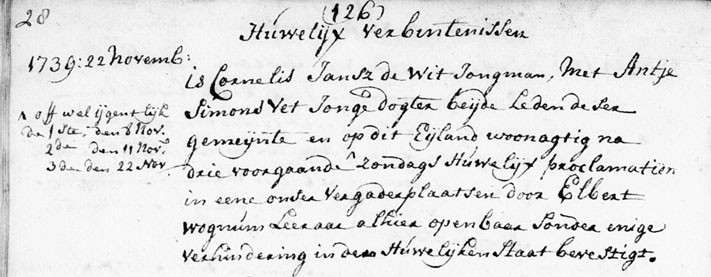 28
(126)
Huwelijx verbintenissen
1739: 22 novemb:
is Cornelis Jansz de Wit Jongman, met Antje
Simons Vet Jonge dogter beijde Leden deser
gemeijnte en op dit Eijland woonagtig na
drie voorgaande ^ zondags Huwelijx proclamatien
in eene onser vergaderplaatsen door Elbert
wognum Leeraar alhier openbaer sonder enige
verhindering in den Huwelijken staat bevestigt.
^ off wel eijgentlijk
de 1 ste, den 8 Nov.
2 de den 11 Nov.
3 de den 22 Nov.